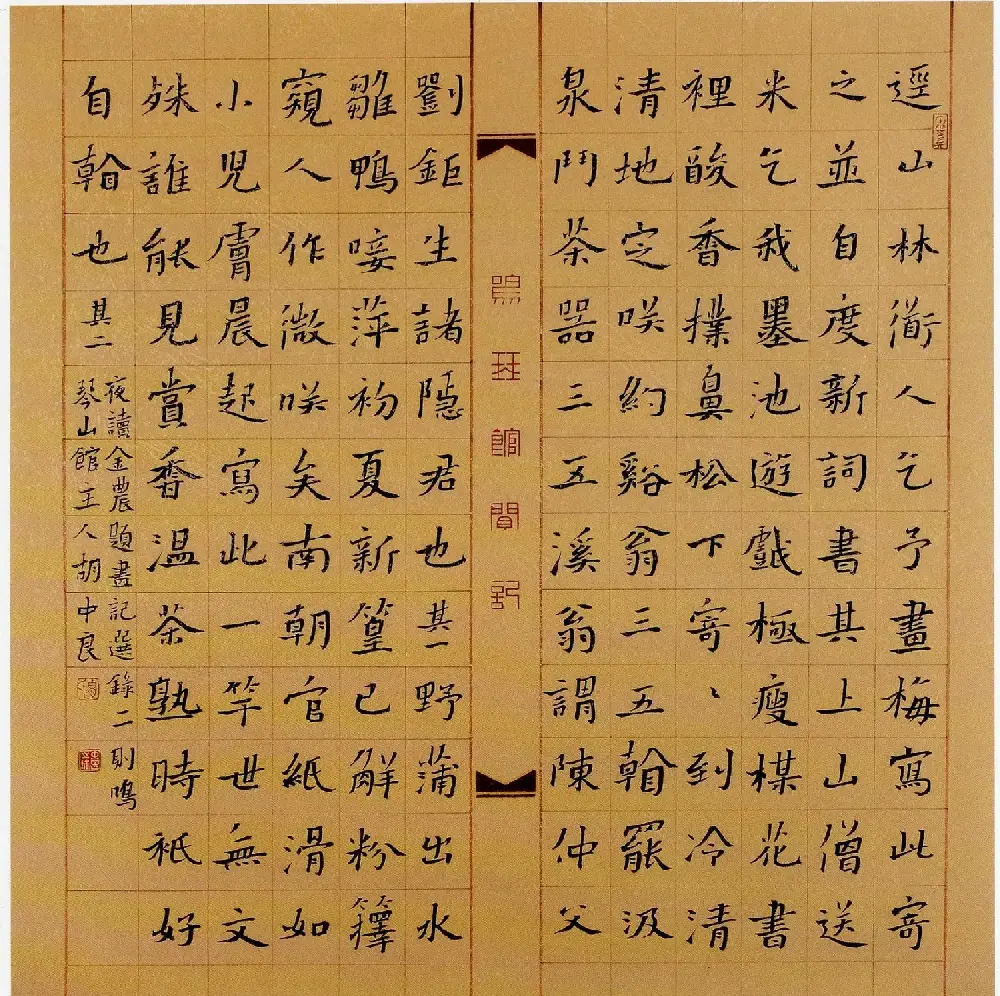 逕山林衜人乞予畫梅寫此寄
之並自度新詞書其上山僧送
米乞我墨池遊戲極瘦楳花書
裡酸香撲鼻松下寄〻到冷清
清地定咲約谿翁三五翰罷汲
泉鬥茶器三五溪翁謂陳仲父
劉鉅生諸隱君也其一野蒲出水
雛鴨唼萍初夏新篁已解粉籜
窺人作微咲矣南朝官紙滑如
小兒膚晨起寫此一竿世無文
殊誰能見賞香溫茶熟時祇好
自翰也其二
夜讀金農題畫記選錄二則鳴
琴山館主人胡中良